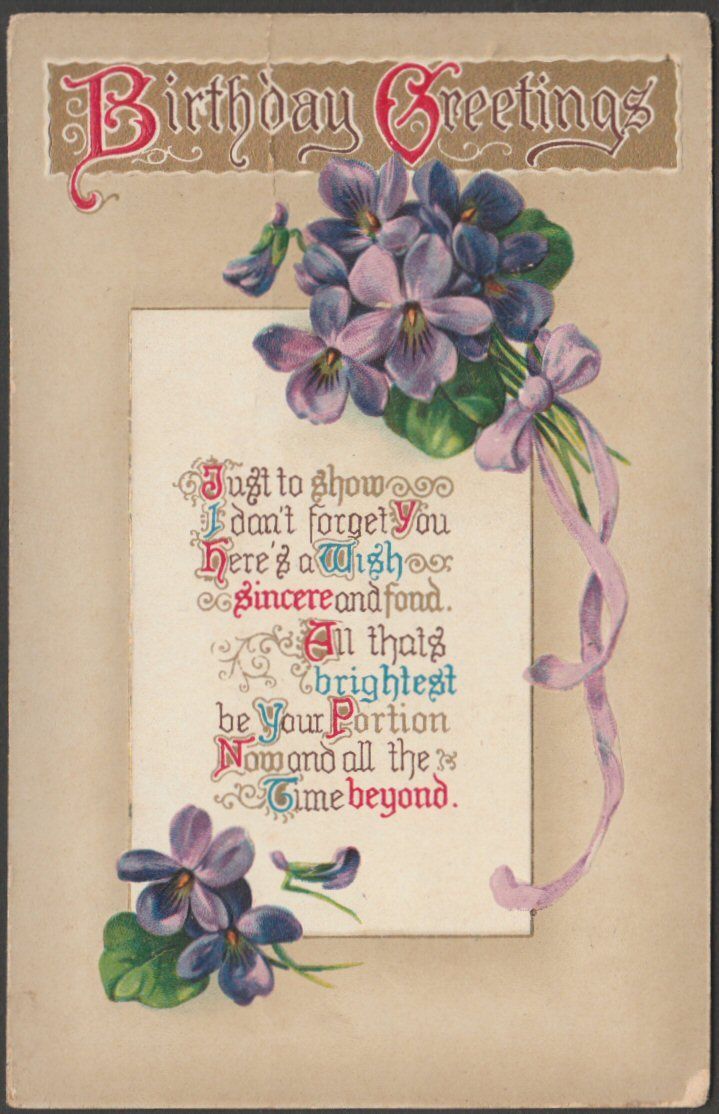 Birthday Greetings
Just to show
I don't forget You
Here's a Wish
sincere and fond.
All thats
brightest
be Your Portion
Now and all the
Time beyond.